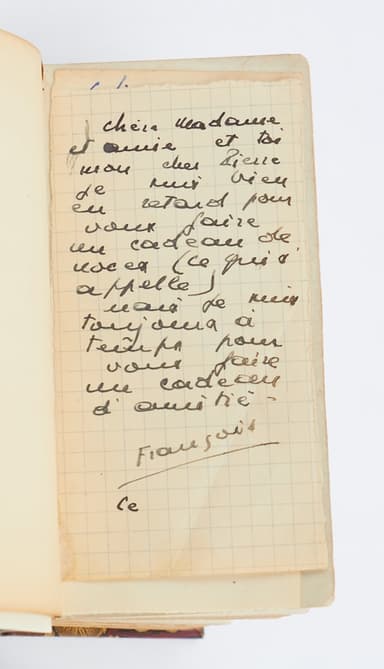 chère Madame
et amie et toi
mon cher Pierre
je suis bien
en retard pour
vous faire
un cadeau de
noces (ce qui s'
appelle)
mais je suis
toujours à
temps pour
vous faire
un cadeau
d'amitié -
François
Ce